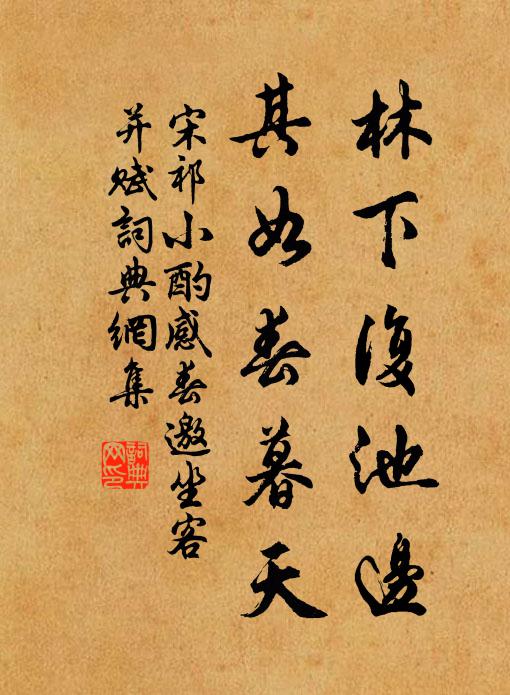 林下復池邊
其如春暮天
宋祁小酌感春邀坐客
并賦詞典網集
詞典網印